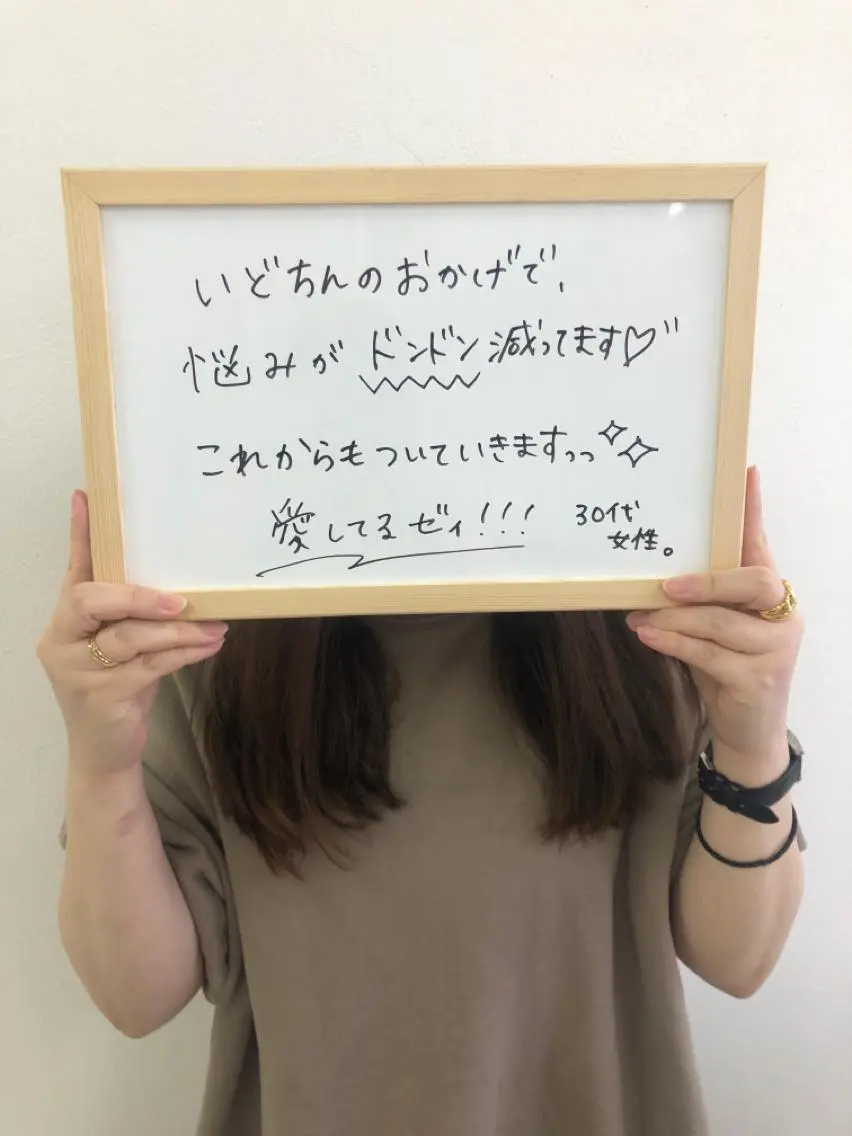 いどちんのおかげで、
悩みがドンドン減ってます♡"
これからもついていきますっっ✧✧
愛してるゼィ!!! 30代
女性。